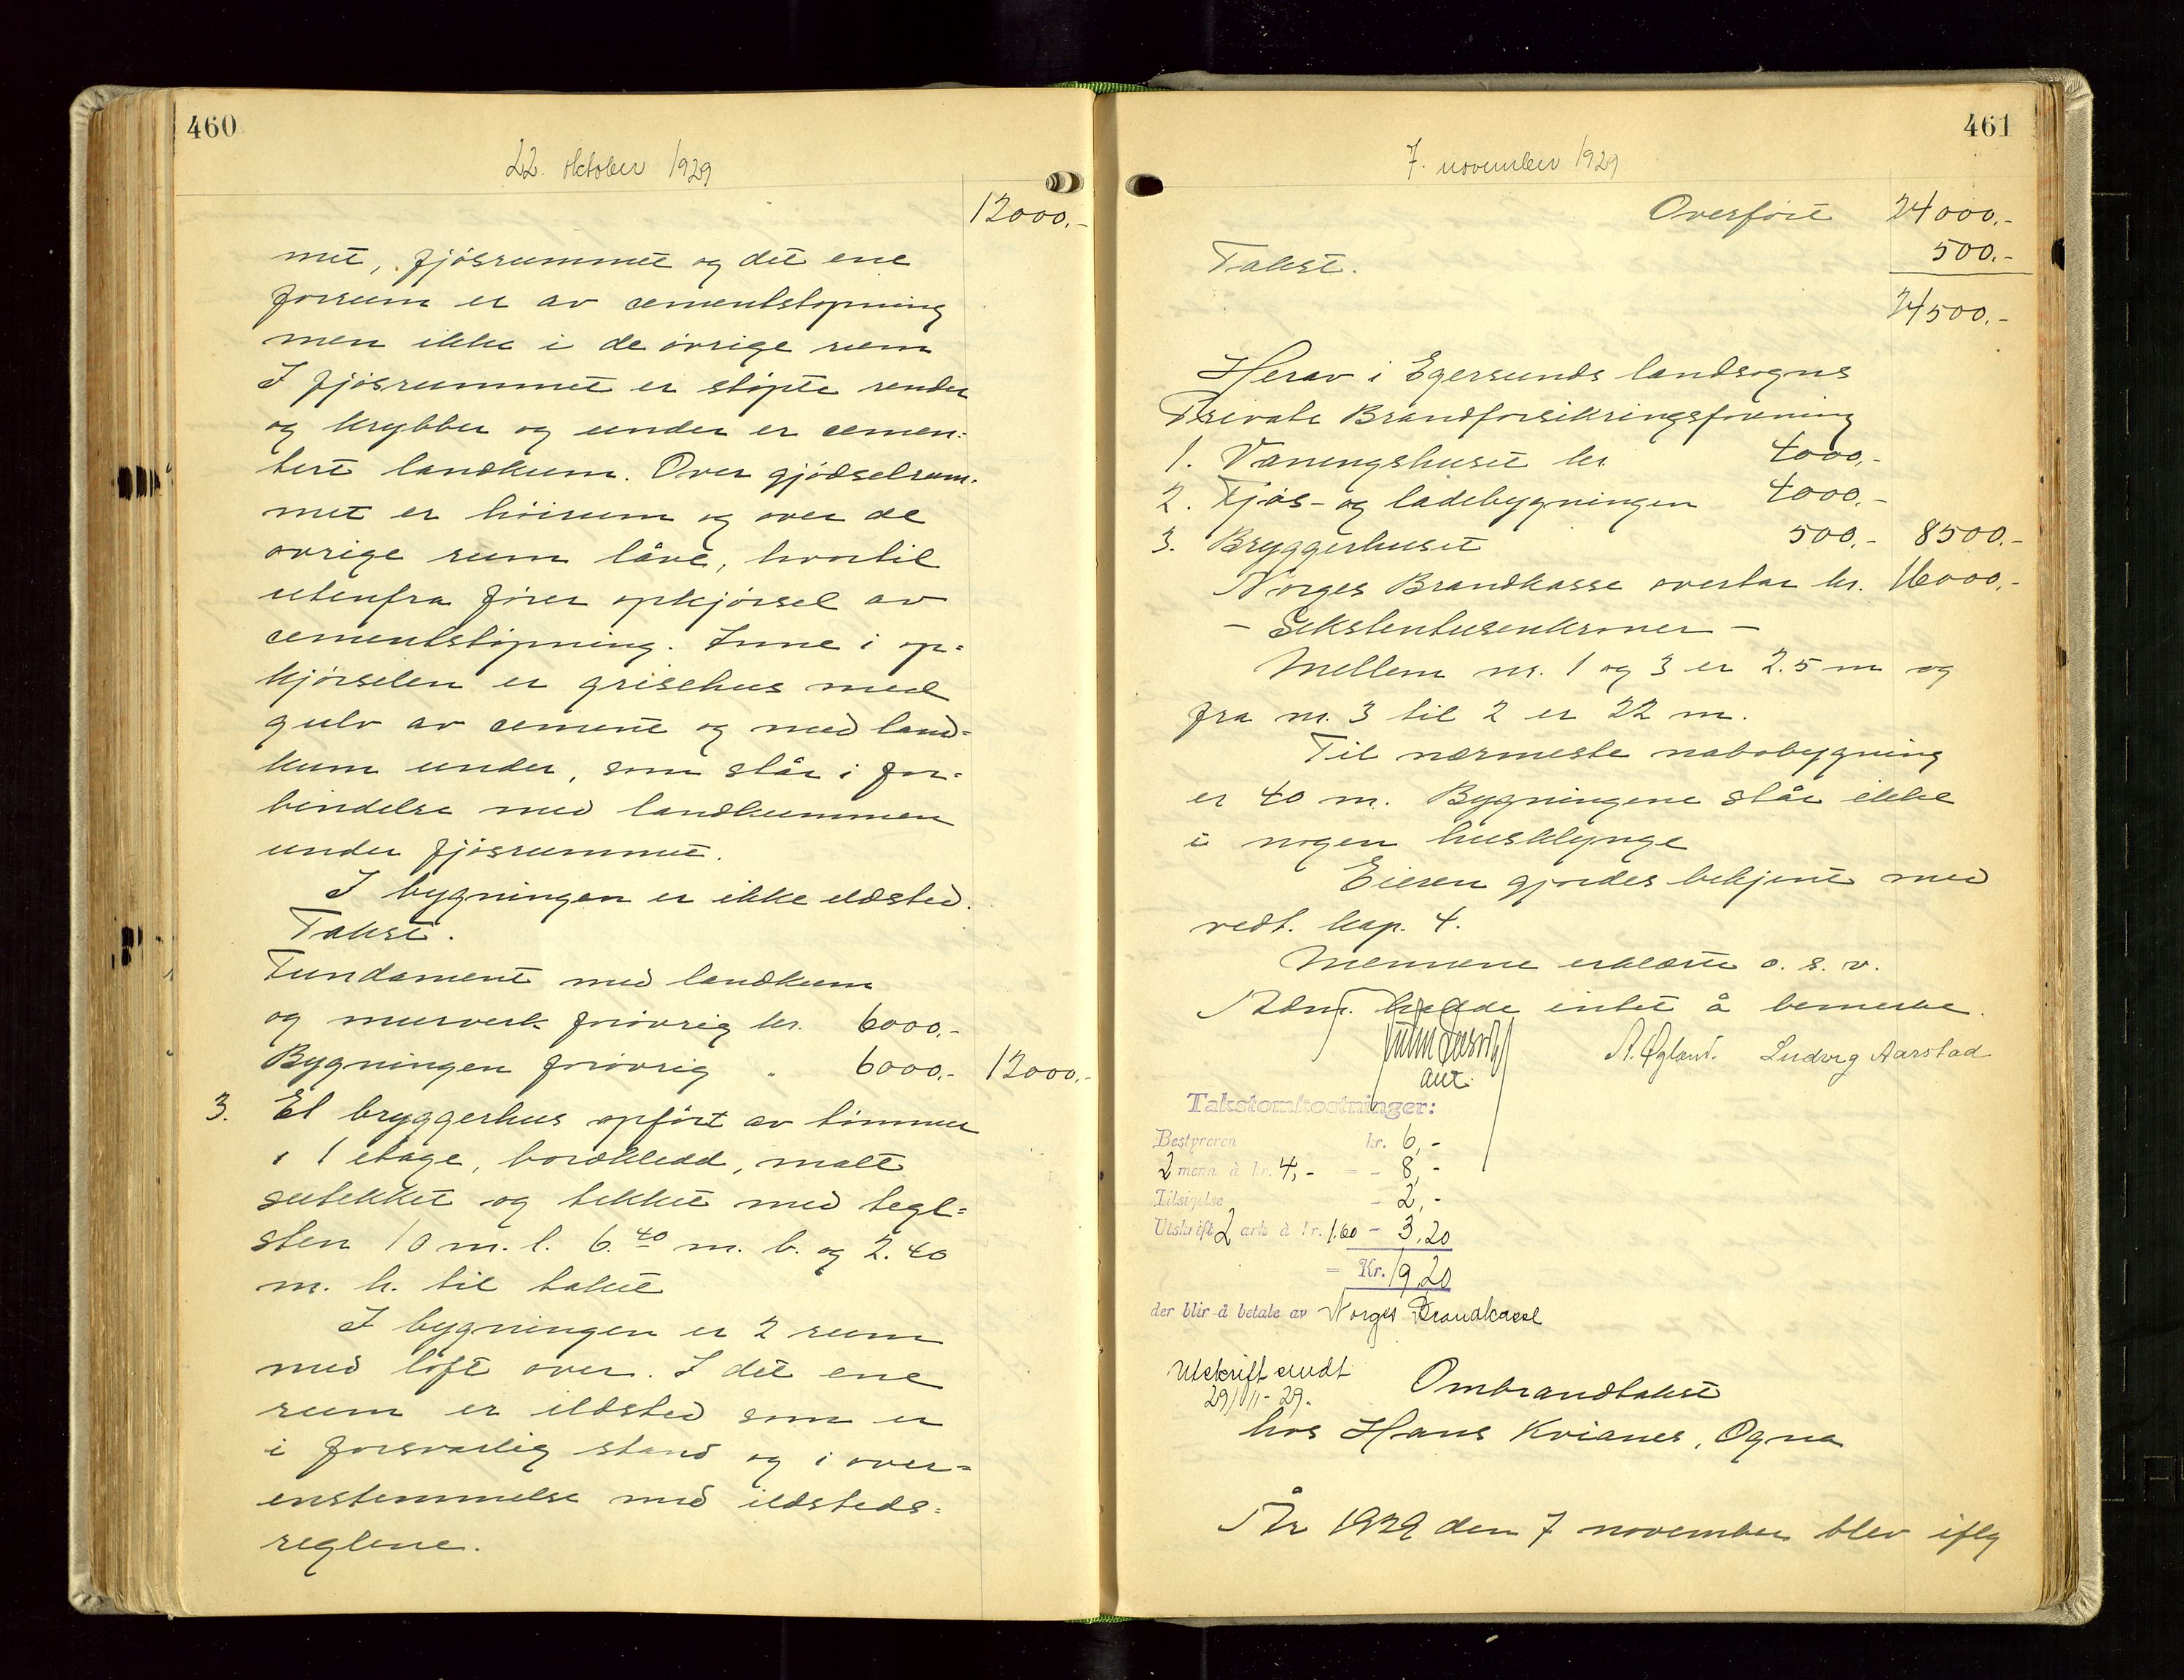 460
22. oktober 1929
12000.-
met, fjøsrummet og det ene
forrum er av cementstøpning
men ikke i de øvrige rum
I fjøsrummet er støpte render
og krybber og under er cemen-
tert landkum. Over gjødselrum-
met er høirum og over de
øvrige rum låve, hvortil
utenfra fører opkjørsel av
cementstøpning. Inne i op-
kjørselen er grisehus med
gulv av cement og med land-
kum under, som står i for-
bindelse med landkummen
under fjøsrummet.
I bygningen er ikke ildsted.
Takst.
Fundament med landkum
og murverk forøvrig kr. 6000.-
Bygningen forøvrig " 6000.- 12000.-
3. Et bryggerhus opført av tømmer
i 1 etage, bordkledd, malt
sutekket og tekket med tegl-
sten 10 m. l. 6.40 m. b. og 2.40
m. h. til taket
I bygningen er 2 rum
med loft over. I det ene
rum er ildsted som er
i forsvarlig stand og i over-
enstemmelse med ildsteds-
reglene.
461
7. november 1929
Overført 24000.-
Takst. 500.-
24500.-
Herav i Egersunds landsogns
Private Brandforsikringsforening
1. Våningshuset kr. 4000.-
2. Fjøs- og ladebygningen 4000.-
3. Bryggerhuset 500.- 8500.-
Norges Brandkasse overtar kr. 16000.-
- Sekstentusenkroner -
Mellem nr. 1 og 3 er 2.5 m og
fra nr. 3 til 2 er 22 m.
Til nærmeste nabobygning
er 40 m. Bygningene står ikke
i nogen husklynge
Eieren gjordes bekjent med
vedt. kap. 4.
Mennene erklærte o. s. v.
hadde intet å bemerke.
A. Øgland. Ludvig Aarstad
Takstomkostninger:
Bestyreren kr. 6,-
2 menn à kr. 4,- = - 8,-
Tilsigelse - 2,-
Utskrift 2 ark à kr. 1.60 - 3,20
= Kr. 19,20
der blir å betale av Norges Brandkasse
Utskrift sendt
29/11-29.
Ombrandtakst
hos Hans Kvianes, Ogna
År 1929 den 7 november blev iflg